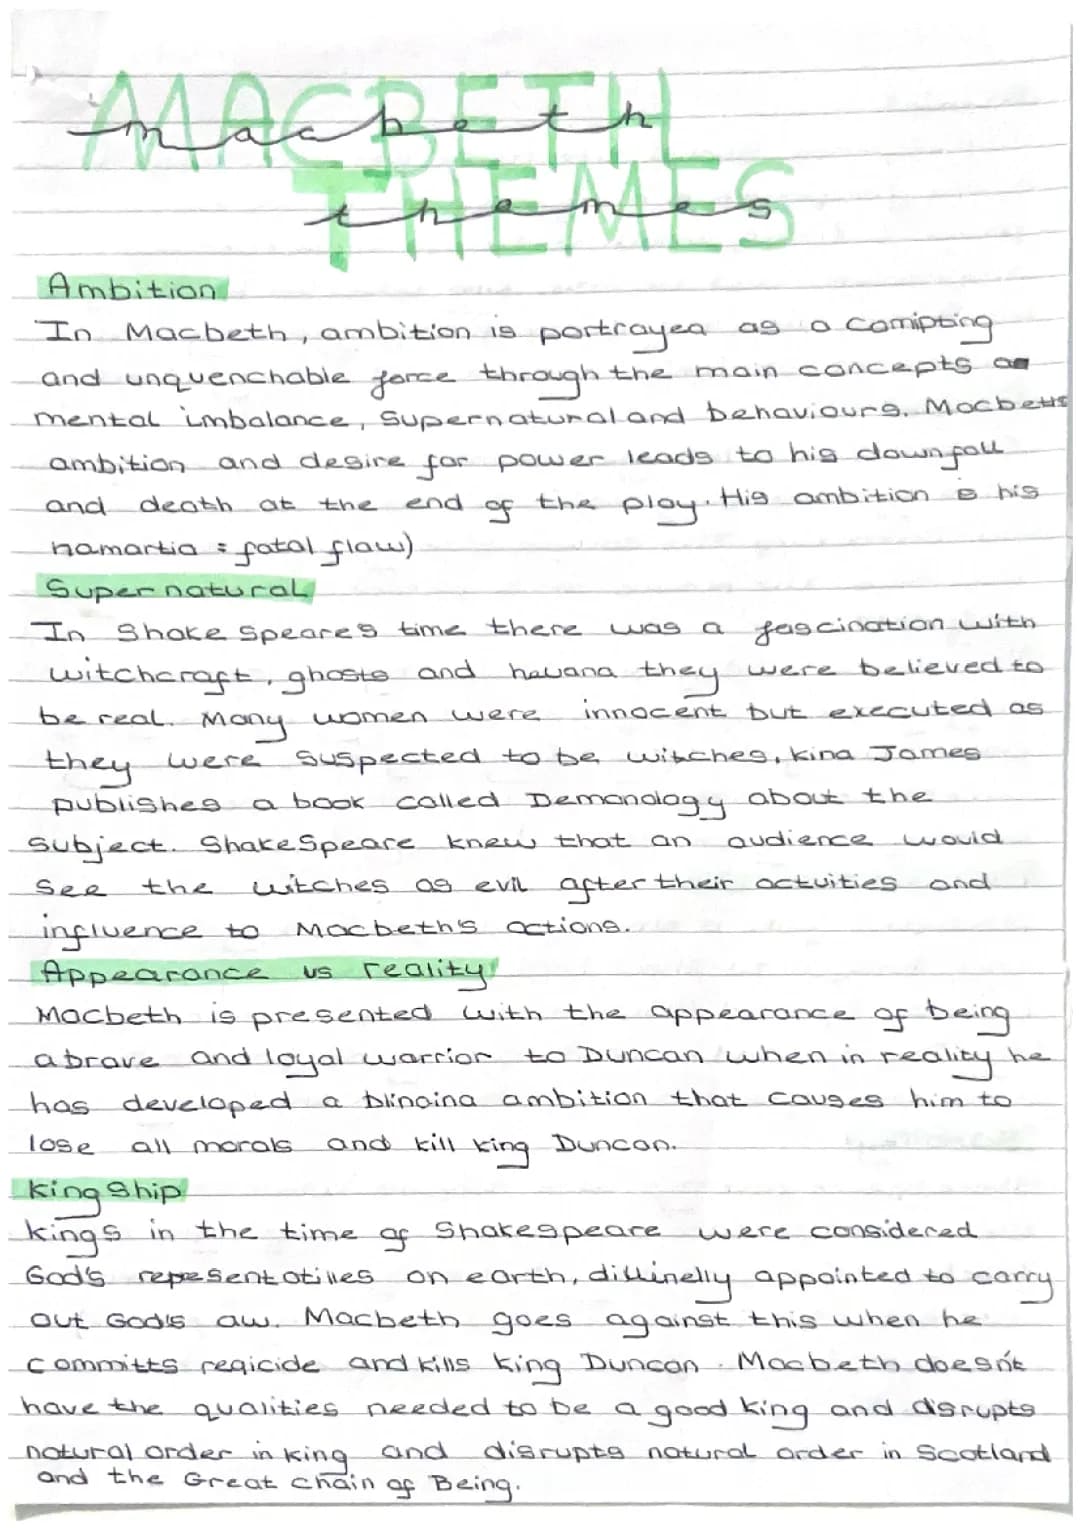 MACBETH
macbeth
THEMES
themes
Ambition
In Macbeth, ambition is portrayed as a corrupting
and unquenchable force through the main concepts
mental imbalance, Supernatural and behaviours. Macbeths
ambition and desire for power leads to his downfall
and death at the end of the play. His ambition is his
hamartia = fatal flaw)
Supernatural
In Shakespeare's time there was a fascination with
witchcraft, ghosts and they were believed to
be real. Many women were innocent but executed as
they were suspected to be witches, King James
publishes a book called Demonology about the
subject. Shakespeare knew that an audience would
see the witches as evil after their activities and
influence to Macbeth's actions.
Appearance vs reality
Macbeth is presented with the appearance of being
a brave and loyal warrior to Duncan when in reality he
has developed a blinding ambition that causes him to
lose all morals and kill king Duncan.
Kingship
kings in the time of Shakespeare were considered
God's representatives on earth, divinelly appointed to carry
out God's aw. Macbeth goes against this when he
committs regicide and kills king Duncan. Macbeth doesn't
have the qualities needed to be a good king and disrupts
natural order in king and disrupts natural order in Scotland
and the Great chain of Being.